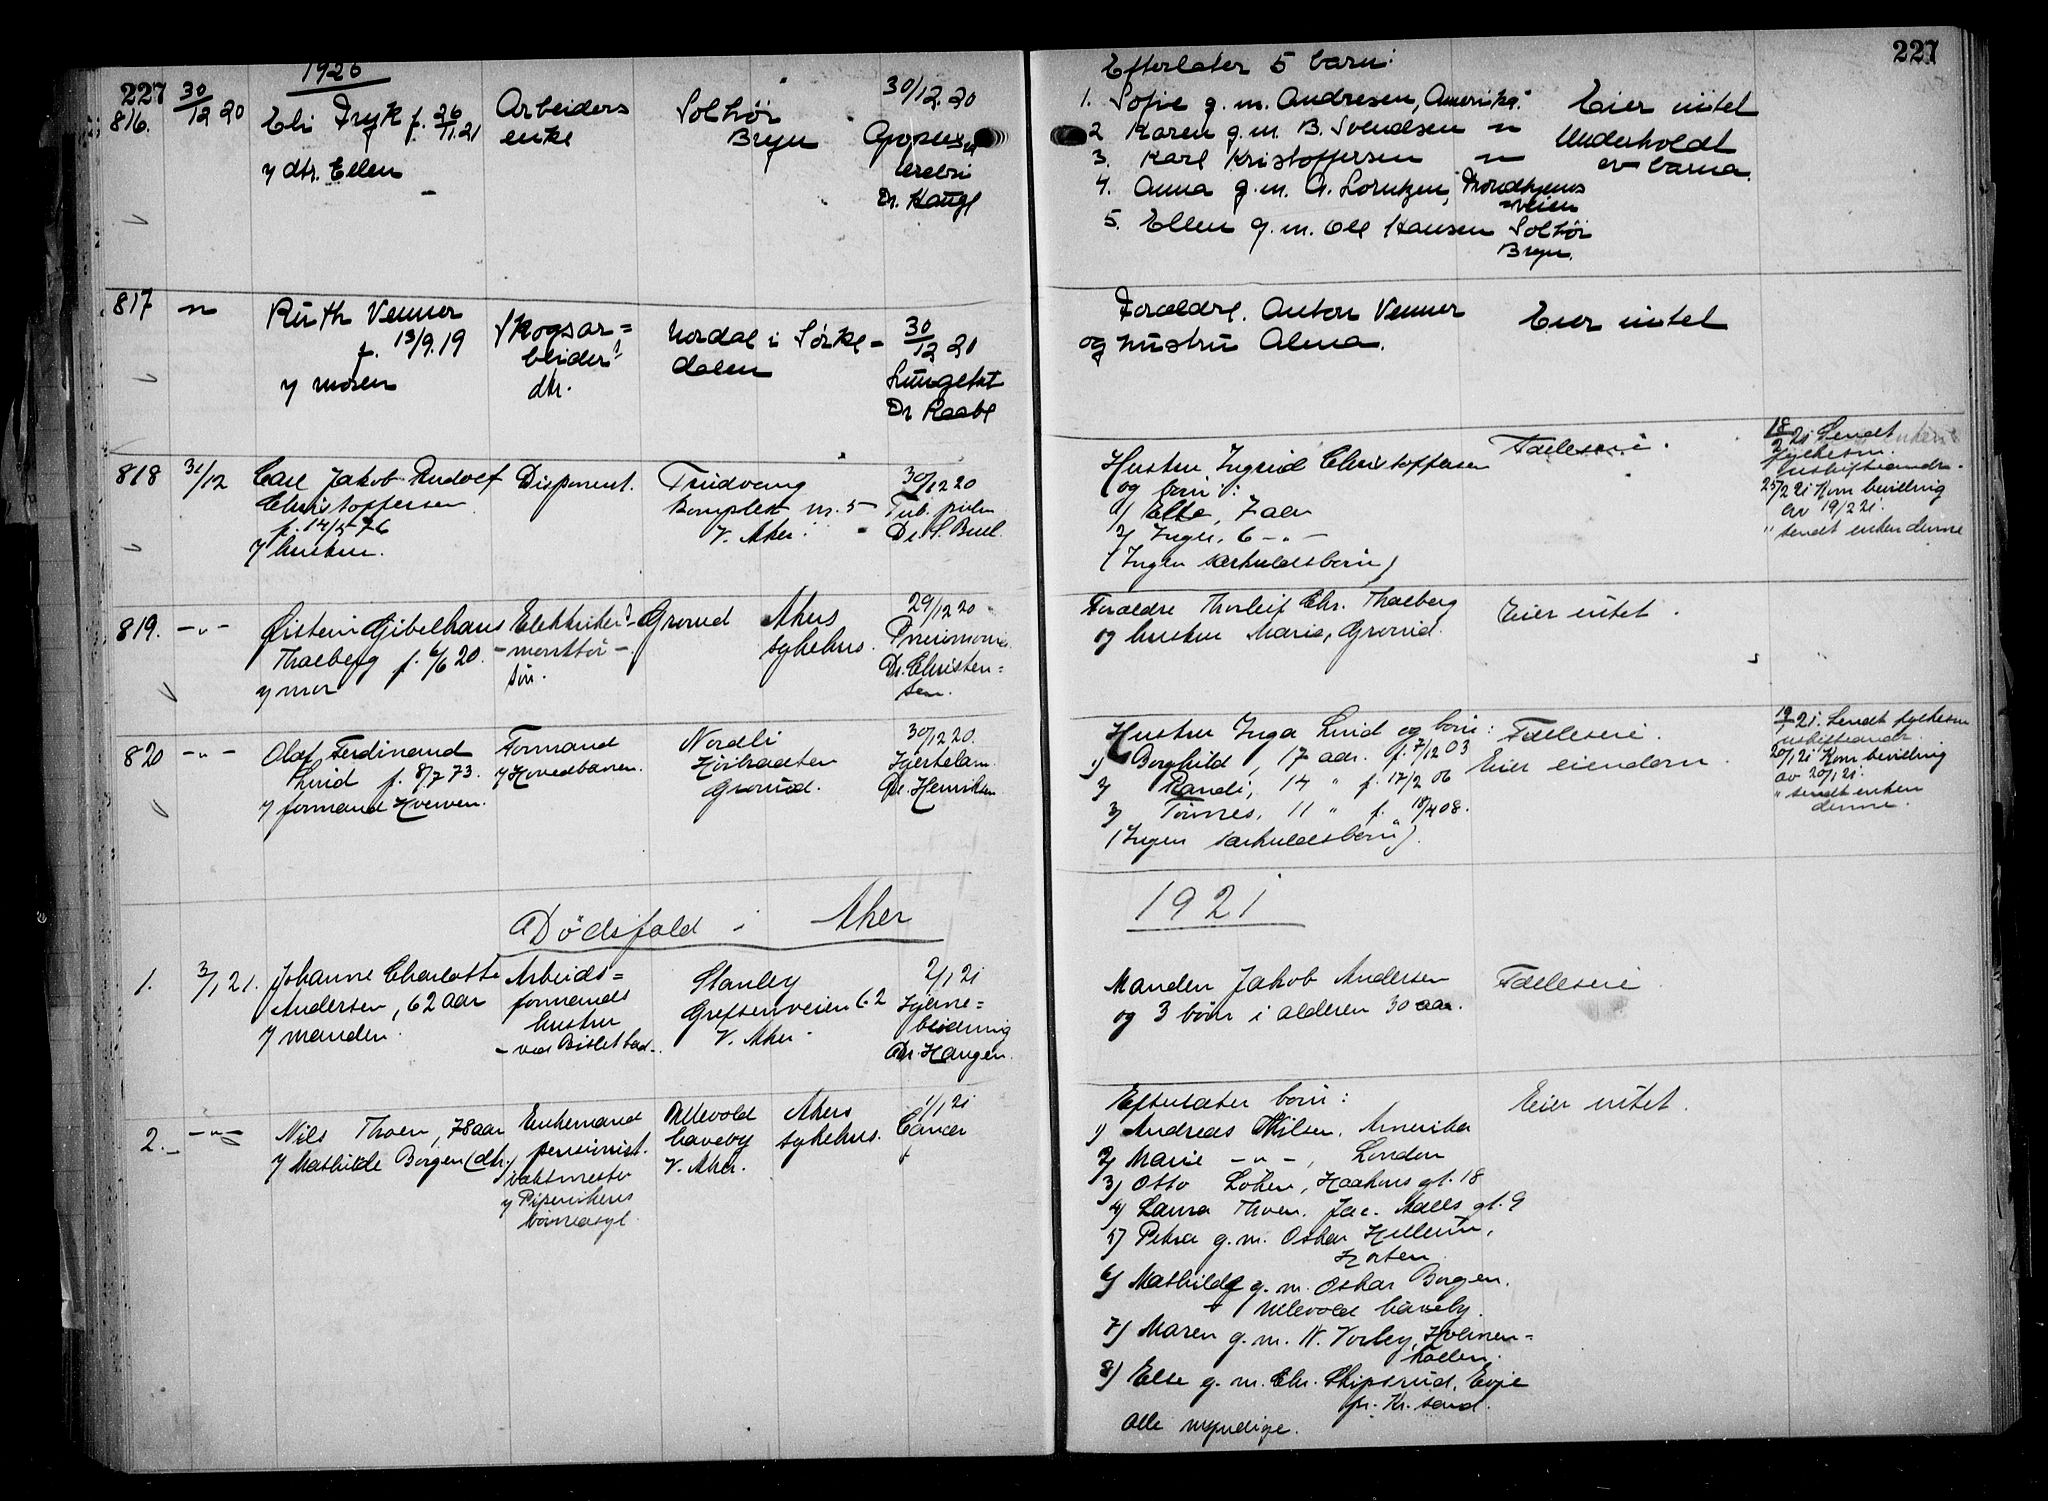 227
1920
816.
30/12 20
Eli Fryk f. 26/11.21
y dtr. Ellen
Arbeiders
enke
Solhöi
Bryn
30/12.20
Apoplexi
cerebri
Dr. Haugl
817
Ruth Venner
f. 13/9.19
y moren
Skogsar=
beider
dtr.
Nordal i Sørke-
dalen
30/12 20
Lungebet
Dr Raabe
818
31/12
Carl Jakob Rudolf
Christoffersen
f. 14/5 76
y hustru.
Disponent.
Trudvang
Komplex nr. 5
V. Aker.
30/12 20
Tub. pulm
Dr. S. Buel.
819.
-"-
Øistein Gibelhaus
Thalberg f. 6/6 20.
y mor
Elektriker
-montör-
sön.
Grorud
Akers
sykehus.
29/12 20
Pneumoni.
Dr. Christen=
sen.
820
-"-
Olaf Ferdinand
Lund f. 8/7 73.
y formand
Formand
y Hovedbanen.
Nordli
Høibraaten
Grorud.
30/12 20.
Hjertelam.
Dr. Henriksen
Dödsfald i Aker
1.
3/1 21.
Johanne Charlotte
Andersen, 62 aar
y manden.
Arbeids=
formands
hustru
-ved Bislet bad-.
Stanley
Grefsenveien 62
V. Aker
2/1 21
Hjerne=
blödning
Dr. Haugen.
2.
-"-
Nils Thoen, 78 aar
y Mathilde Borgen (dtr.)
Enkemand
pensionist.
vaktmester
y Pipervikens
barneasyl.
Ullevold
haveby
V. Aker.
Akers
sykehus.
1/1 21
Cancer
227
Efterlater 5 barn:
1. Sofie g. m. Andresen, Amerika.
2 Karen g. m. B. Svendsen "
3. Karl Kristoffersen "
4. Anna g. m. A. Lorntzen, Trondhjems
veien
5. Ellen g. m. Ole Hansen Solhöi
Bryn.
Eier intet
Underholdt
av barna.
Foreldre. Anton Venner
og hustru Alma.
Eier intet
Hustru Ingrid Christoffersen
og börn:
1) Else, 7 aar
2) Inger, 6 -"-
(Ingen særkuldsbörn)
Fælleseie.
18/2 21 Sendt
fylkesm.
uskifteandr.
25/2 21 Kom bevilling
av 19/2 21.
" sendt enken denne
Foreldre Thorleif Chr. Thalberg
og hustru Marie, Grorud.
Eier intet.
Hustru Inga Lund og börn:
1) Borghild, 17 aar. f. 7/12 03
2) Randi, 14 " f. 17/2 06
3) Tönnes, 11 " f. 18/4 08.
(Ingen særkuldsbörn).
Fælleseie.
Eier eiendom.
19/1 21. Sendt fylkesm
uskifteandr.
20/1 21 Kom bevilling
av 20/1 21.
" sendt enken
denne.
1921
Manden Jakob Andersen
og 3 börn i alderen 30 aar.
Fælleseie
Efterlater börn:
1) Andreas Nilsen, Amerika
2) Marie -"-, London
3) Otto Löken, Haakons gt. 18
4) Laura Thoen, Jac. Aalls gt. 9
5) Petra g. m. Oskar Hellerin,
Horten.
6) Mathilde g. m. Oskar Borgen.
Ullevold haveby.
7) Maren g. m. N. Vorley, Holmen=
kollen.
8) Else g. m. Chr. Skipsrud, Evje
pr. Kr. sand.
Alle myndige.
Eier intet.